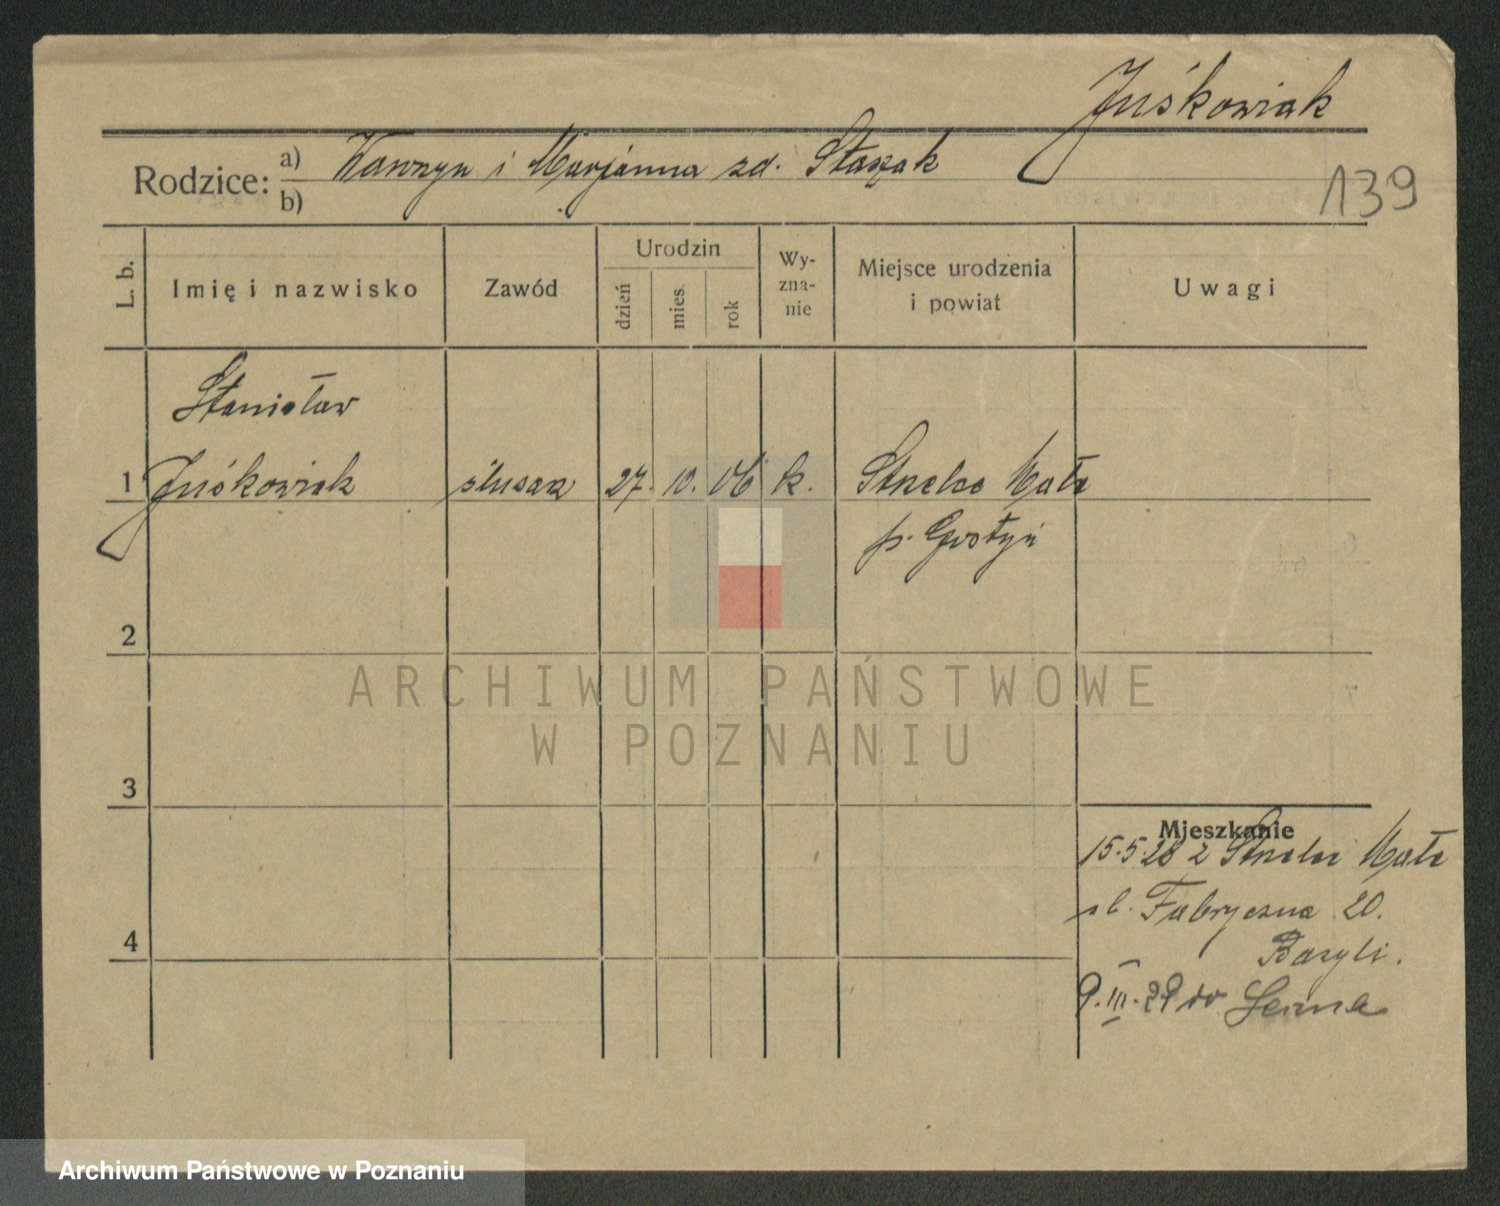 Juśkowiak
Rodzice: a) Wawrzyn i Marjanna zd. Staszak
b)
139
L. b.
Imię i nazwisko
Zawód
Urodzin
dzień
mies.
rok
Wy-
zna-
nie
Miejsce urodzenia
i powiat
Uwagi
Stanisław
1 Juśkowiak ślusarz 27. 10. 06 k. Strzelce Małe
p. Gostyń
2
ARCHIWUM PAŃSTWOWE
W POZNANIU
3
Mieszkanie
15.5.28 z Strzelce Małe
ul. Fabryczna 20.
4
9.III.29 do
Archiwum Państwowe w Poznaniu